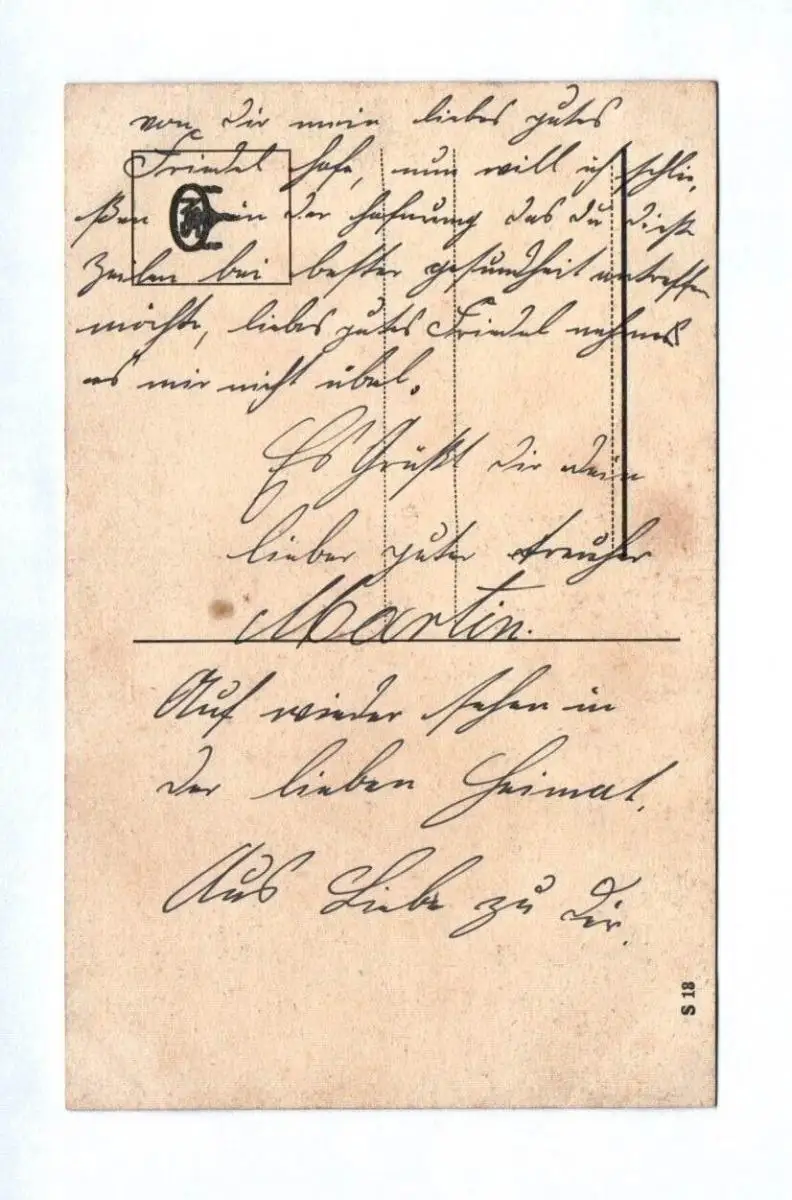 von dir mein liebes gutes
Friedel hofe, nun will ich schlie,
ßen in der hofnung das du diese
Zeilen bei bester gesundheit antreffen
möchte, liebes gutes Friedel nehme
es mir nicht übel.
Es Grüßt dir dein
lieber guter treuher
Martin.
Auf wieder sehen in
der lieben Heimat.
Aus Liebe zu Dir.
S 18